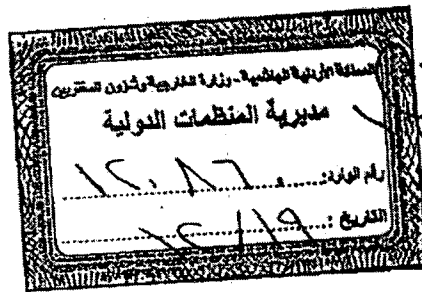 المملكة الأردنية الهاشمية - وزارة الخارجية وشؤون المغتربين
مديرية المنظمات الدولية
رقم الوارد: ١٢٠٨٦
التاريخ: ١٢/١٩